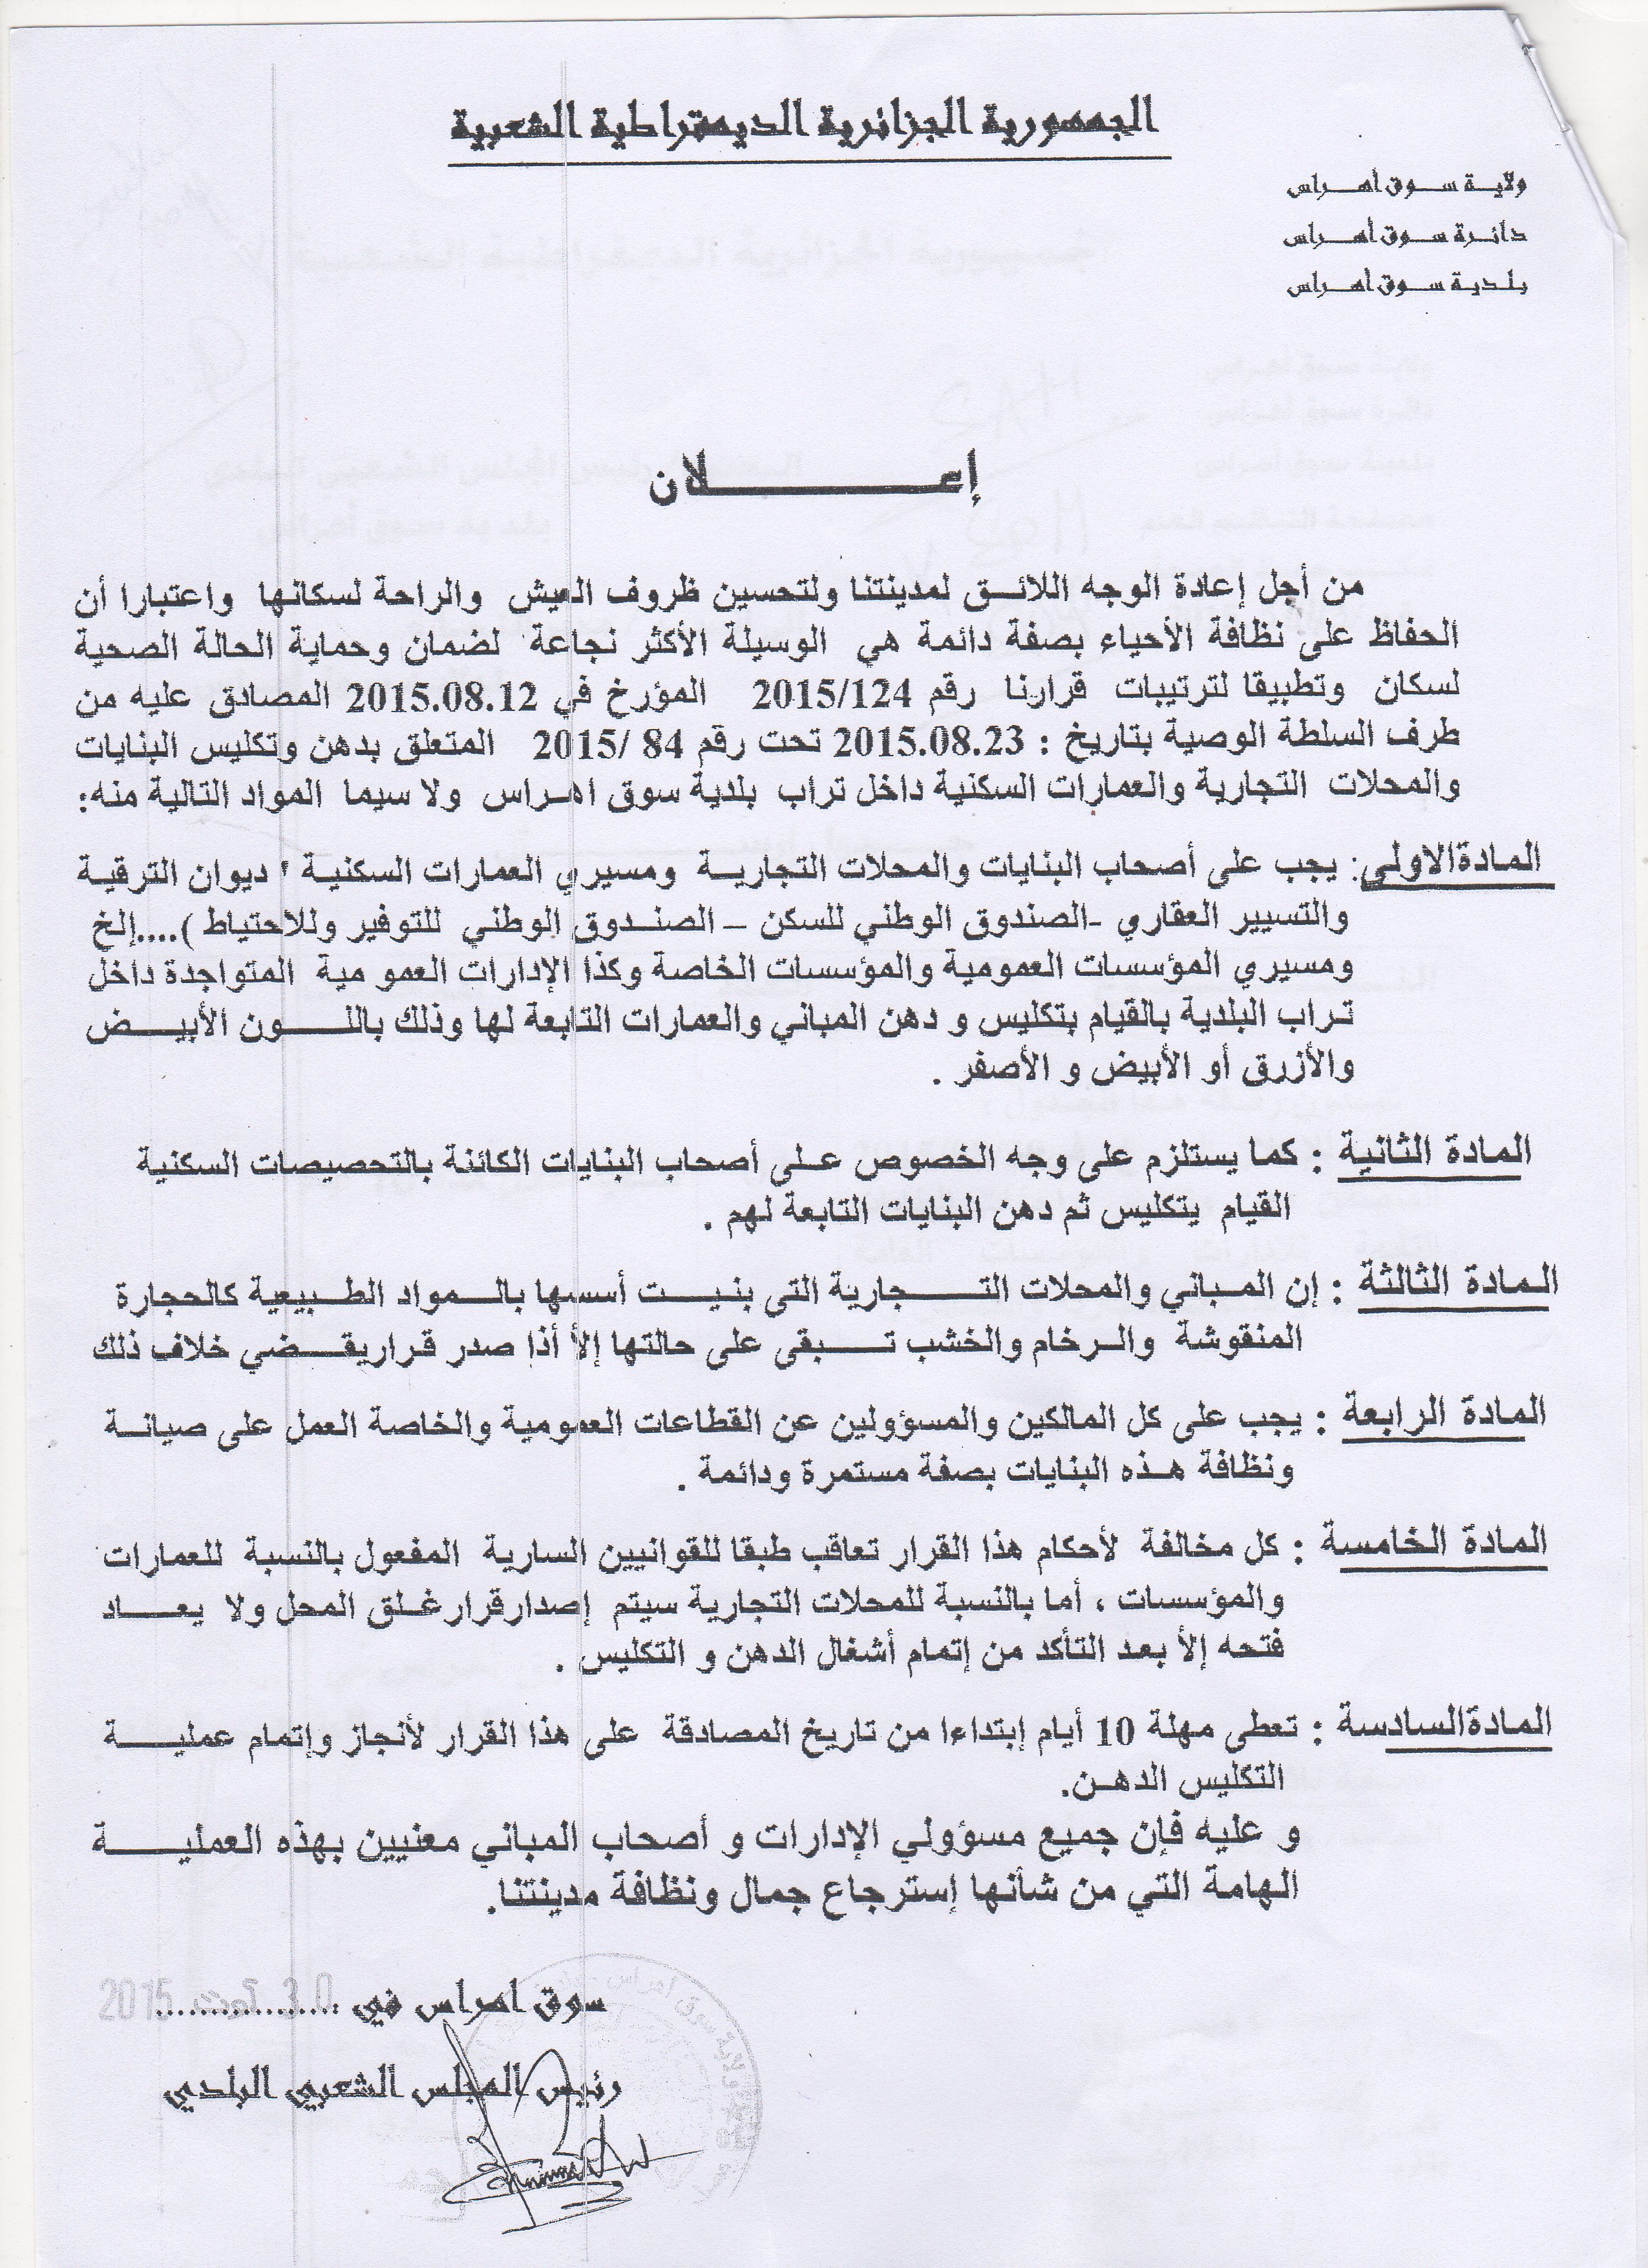 الجمهورية الجزائرية الديمقراطية الشعبية
ولاية سوق أهراس
دائرة سوق أهراس
بلدية سوق أهراس
إعلان
من أجل إعادة الوجه اللائق لمدينتنا ولتحسين ظروف العيش والراحة لسكانها واعتبارا أن
الحفاظ على نظافة الأحياء بصفة دائمة هي الوسيلة الأكثر نجاعة لضمان وحماية الحالة الصحية
لسكان وتطبيقا لترتيبات قرارنا رقم 2015/124 المؤرخ في 2015.08.12 المصادق عليه من
طرف السلطة الوصية بتاريخ : 2015.08.23 تحت رقم 84 /2015 المتعلق بدهن وتكليس البنايات
والمحلات التجارية والعمارات السكنية داخل تراب بلدية سوق اهراس ولا سيما المواد التالية منه:
المادةالاولى: يجب على أصحاب البنايات والمحلات التجارية ومسيري العمارات السكنية " ديوان الترقية
والتسيير العقاري -الصندوق الوطني للسكن – الصندوق الوطني للتوفير وللاحتياط )....إلخ
ومسيري المؤسسات العمومية والمؤسسات الخاصة وكذا الإدارات العمو مية المتواجدة داخل
تراب البلدية بالقيام بتكليس و دهن المباني والعمارات التابعة لها وذلك باللون الأبيض
والأزرق أو الأبيض و الأصفر .
المادة الثانية : كما يستلزم على وجه الخصوص على أصحاب البنايات الكائنة بالتحصيصات السكنية
القيام يتكليس ثم دهن البنايات التابعة لهم .
المادة الثالثة : إن المباني والمحلات التجارية التى بنيت أسسها بالمواد الطبيعية كالحجارة
المنقوشة والرخام والخشب تبقى على حالتها إلا أذا صدر قراريقضي خلاف ذلك
المادة الرابعة : يجب على كل المالكين والمسؤولين عن القطاعات العمومية والخاصة العمل على صيانة
ونظافة هذه البنايات بصفة مستمرة ودائمة .
المادة الخامسة : كل مخالفة لأحكام هذا القرار تعاقب طبقا للقوانيين السارية المفعول بالنسبة للعمارات
والمؤسسات ، أما بالنسبة للمحلات التجارية سيتم إصدارقرارغلق المحل ولا يعاد
فتحه إلا بعد التأكد من إتمام أشغال الدهن و التكليس .
المادةالسادسة : تعطى مهلة 10 أيام إبتداءا من تاريخ المصادقة على هذا القرار لأنجاز وإتمام عملية
التكليس الدهن.
و عليه فإن جميع مسؤولي الإدارات و أصحاب المباني معنيين بهذه العملية
الهامة التي من شأنها إسترجاع جمال ونظافة مدينتنا.
سوق اهراس في ................. 30 أوت 2015
رئيس المجلس الشعبي البلدي